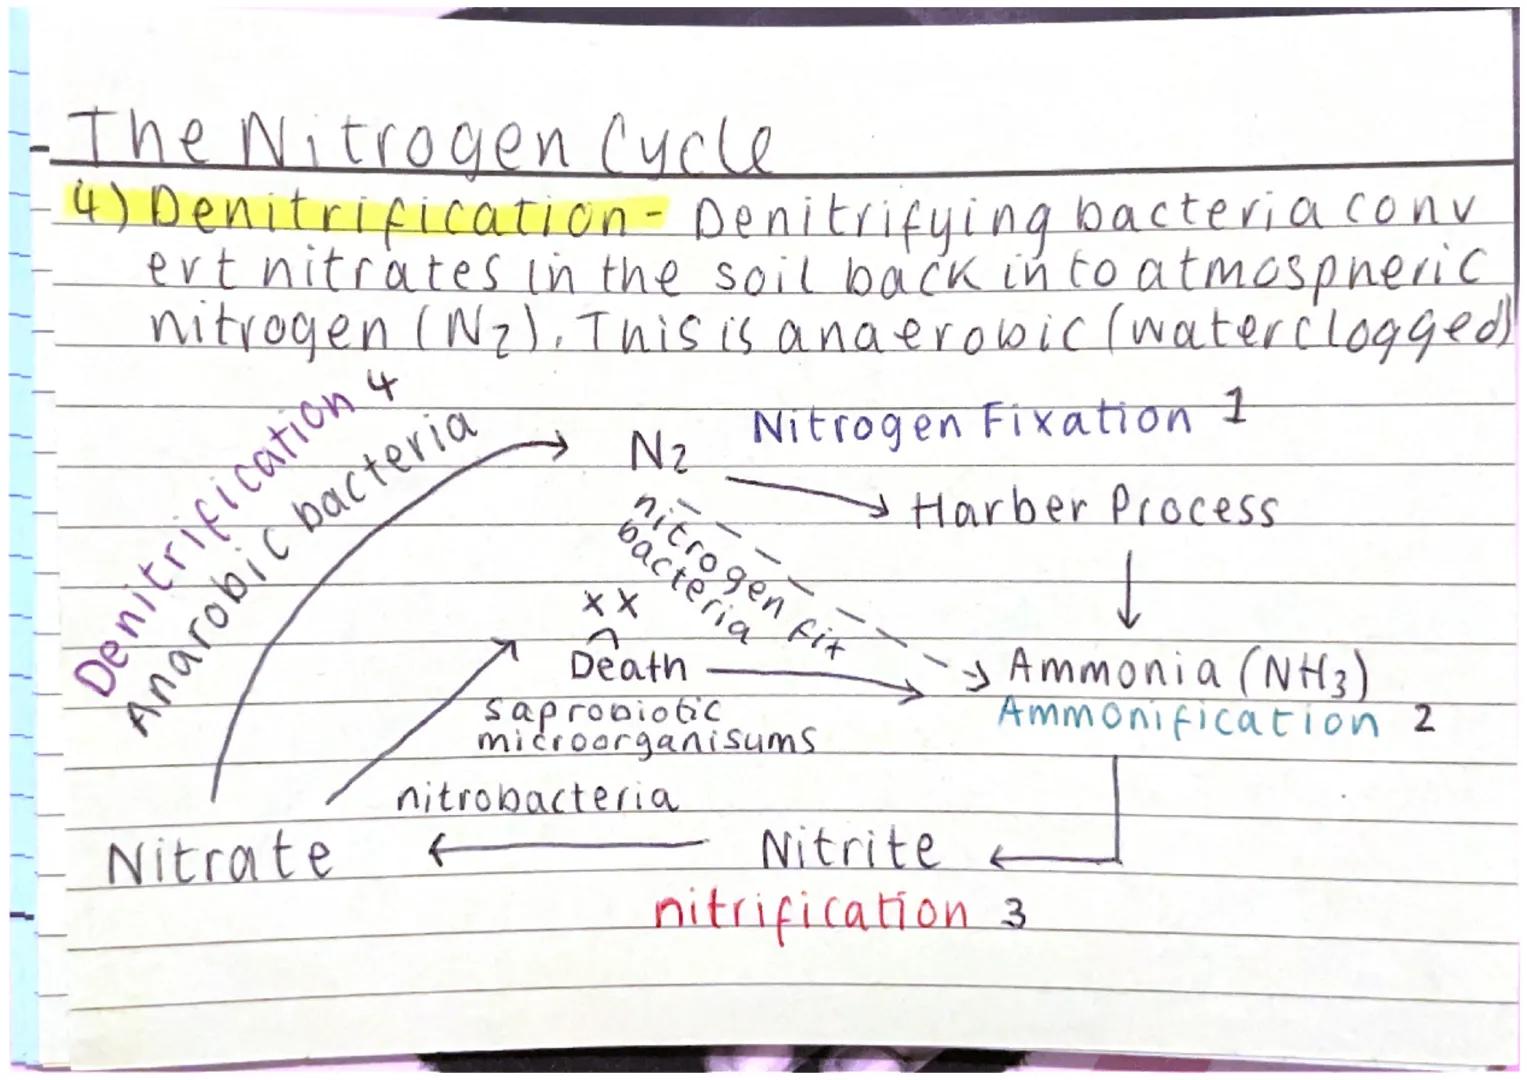 The Nitrogen Cycle
4) Denitrification - Denitrifying bacteria conv
ert nitrates in the soil back into atmospheric
nitrogen (N2). This is anaerobic (waterclogged)
Denitrification 4
Anarobic bacteria
N2
Nitrogen Fixation 1
Harber Process
nitrogen fix
bacteria
x x
Death
Ammonia (NH3)
Ammonification 2
saprobiotic
microorganisums
nitrobacteria
Nitrate
Nitrite
nitrification 3